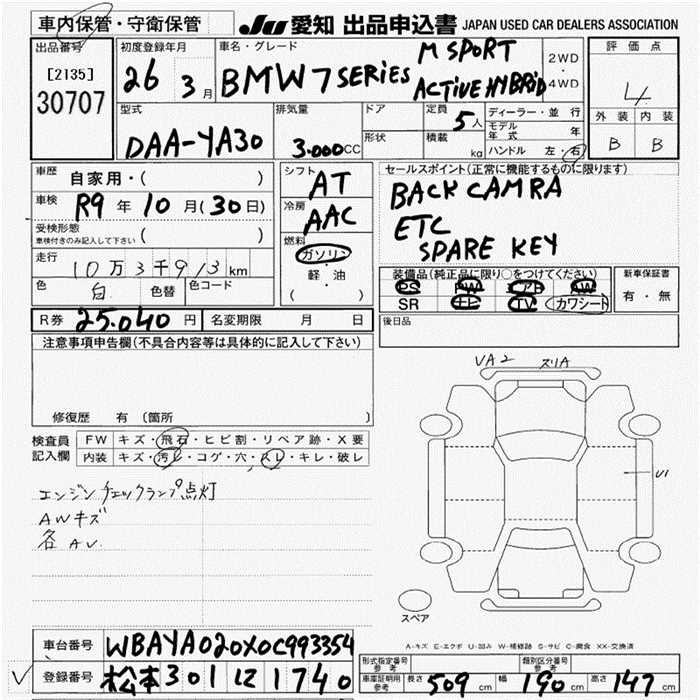 車内保管・守衛保管
JU 愛知 出品申込書 JAPAN USED CAR DEALERS ASSOCIATION
出品番号
[2135]
30707
初度登録年月
26 3月
車名・グレード
BMW 7 SERIES
M SPORT
ACTIVE HYBRID
2WD
・
4WD
評価点
4
外装 内装
B B
型式
DAA-YA30
排気量
3.000CC
ドア
形状
定員
5人
積載
kg
ディーラー・並行
モデル年式 年
ハンドル 左・右
車歴 自家用・( )
車検 R9年 10月(30日)
受検形態
車検付きのみ記入して下さい ( )
走行 10万3千913km
色 白 色替 色コード
シフト
AT
冷房
AAC
燃料
ガソリン
・
軽・油
( )
セールスポイント(正常に機能するものに限ります)
BACK CAMRA
ETC
SPARE KEY
装備品(純正品に限り○をつけてください)
PS PW エアB AW
SR ナビ TV カワシート
新車保証書
有・無
R券 25.040円 名変期限 月 日
後日品
注意事項申告欄(不具合内容等は具体的に記入して下さい)
修復歴 有 〔箇所
検査員
記入欄
FW キズ・飛石・ヒビ割・リペア跡・X要
内装 キズ・汚レ・コゲ・穴・スレ・キレ・破レ
エンジンチェックランプ点灯
AWキズ
各AU
VA2 ズリA
U1
スペア
A-キズ E-エクボ U-凹み W-補修跡 S-サビ C-腐食 XX-交換済
車台番号 WBAYA020X0C993354
登録番号 松本301に1740
形式指定番号
参考
類別区分番号
参考
車庫証明用
参考
長さ 509cm 幅 190cm 高さ 147cm